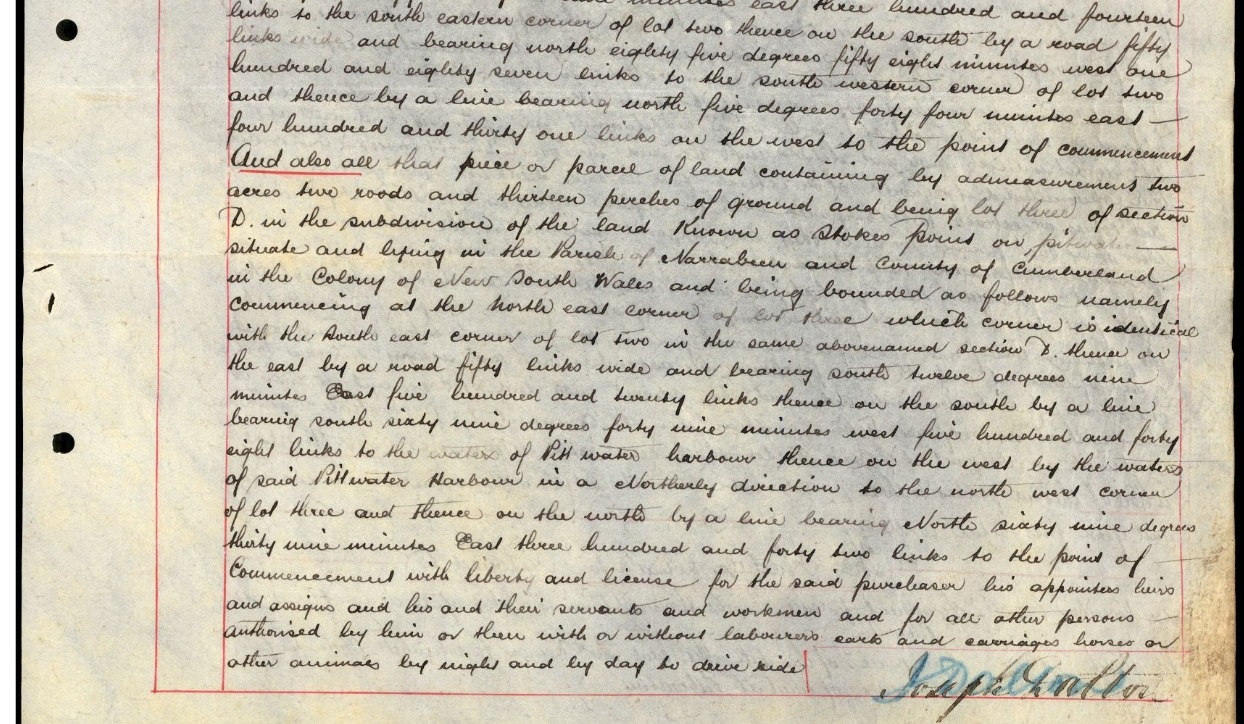 minutes east three hundred and fourteen
links to the south eastern corner of lot two thence on the south by a road fifty
links wide and bearing north eighty five degrees fifty eight minutes west one
hundred and eighty seven links to the south western corner of lot two
and thence by a line bearing north five degrees forty four minutes east —
four hundred and thirty one links on the west to the point of commencement
And also all that piece or parcel of land containing by admeasurement two
acres two roods and thirteen perches of ground and being lot three of section
D. in the subdivision of the land Known as Stokes Point on pitwater —
situate and lying in the Parish of Narrabeen and County of Cumberland
in the Colony of New South Wales and being bounded as follows namely
commencing at the north east corner of lot three which corner is identical
with the South east corner of lot two in the same abovenamed section D. thence on
the east by a road fifty links wide and bearing south twelve degrees nine
minutes East five hundred and twenty links thence on the south by a line
bearing south sixty nine degrees forty nine minutes west five hundred and forty
eight links to the waters of Pitt water harbour thence on the west by the waters
of said Pittwater Harbour in a Northerly direction to the north west corner
of lot three and thence on the north by a line bearing North sixty nine degrees
thirty nine minutes East three hundred and forty two links to the point of —
Commencement with liberty and license for the said purchaser his appointees heirs
and assigns and his and their servants and workmen and for all other persons —
authorised by him or them with or without labourers carts and carriages horses or
other animals by night and by day to drive ride
Joseph